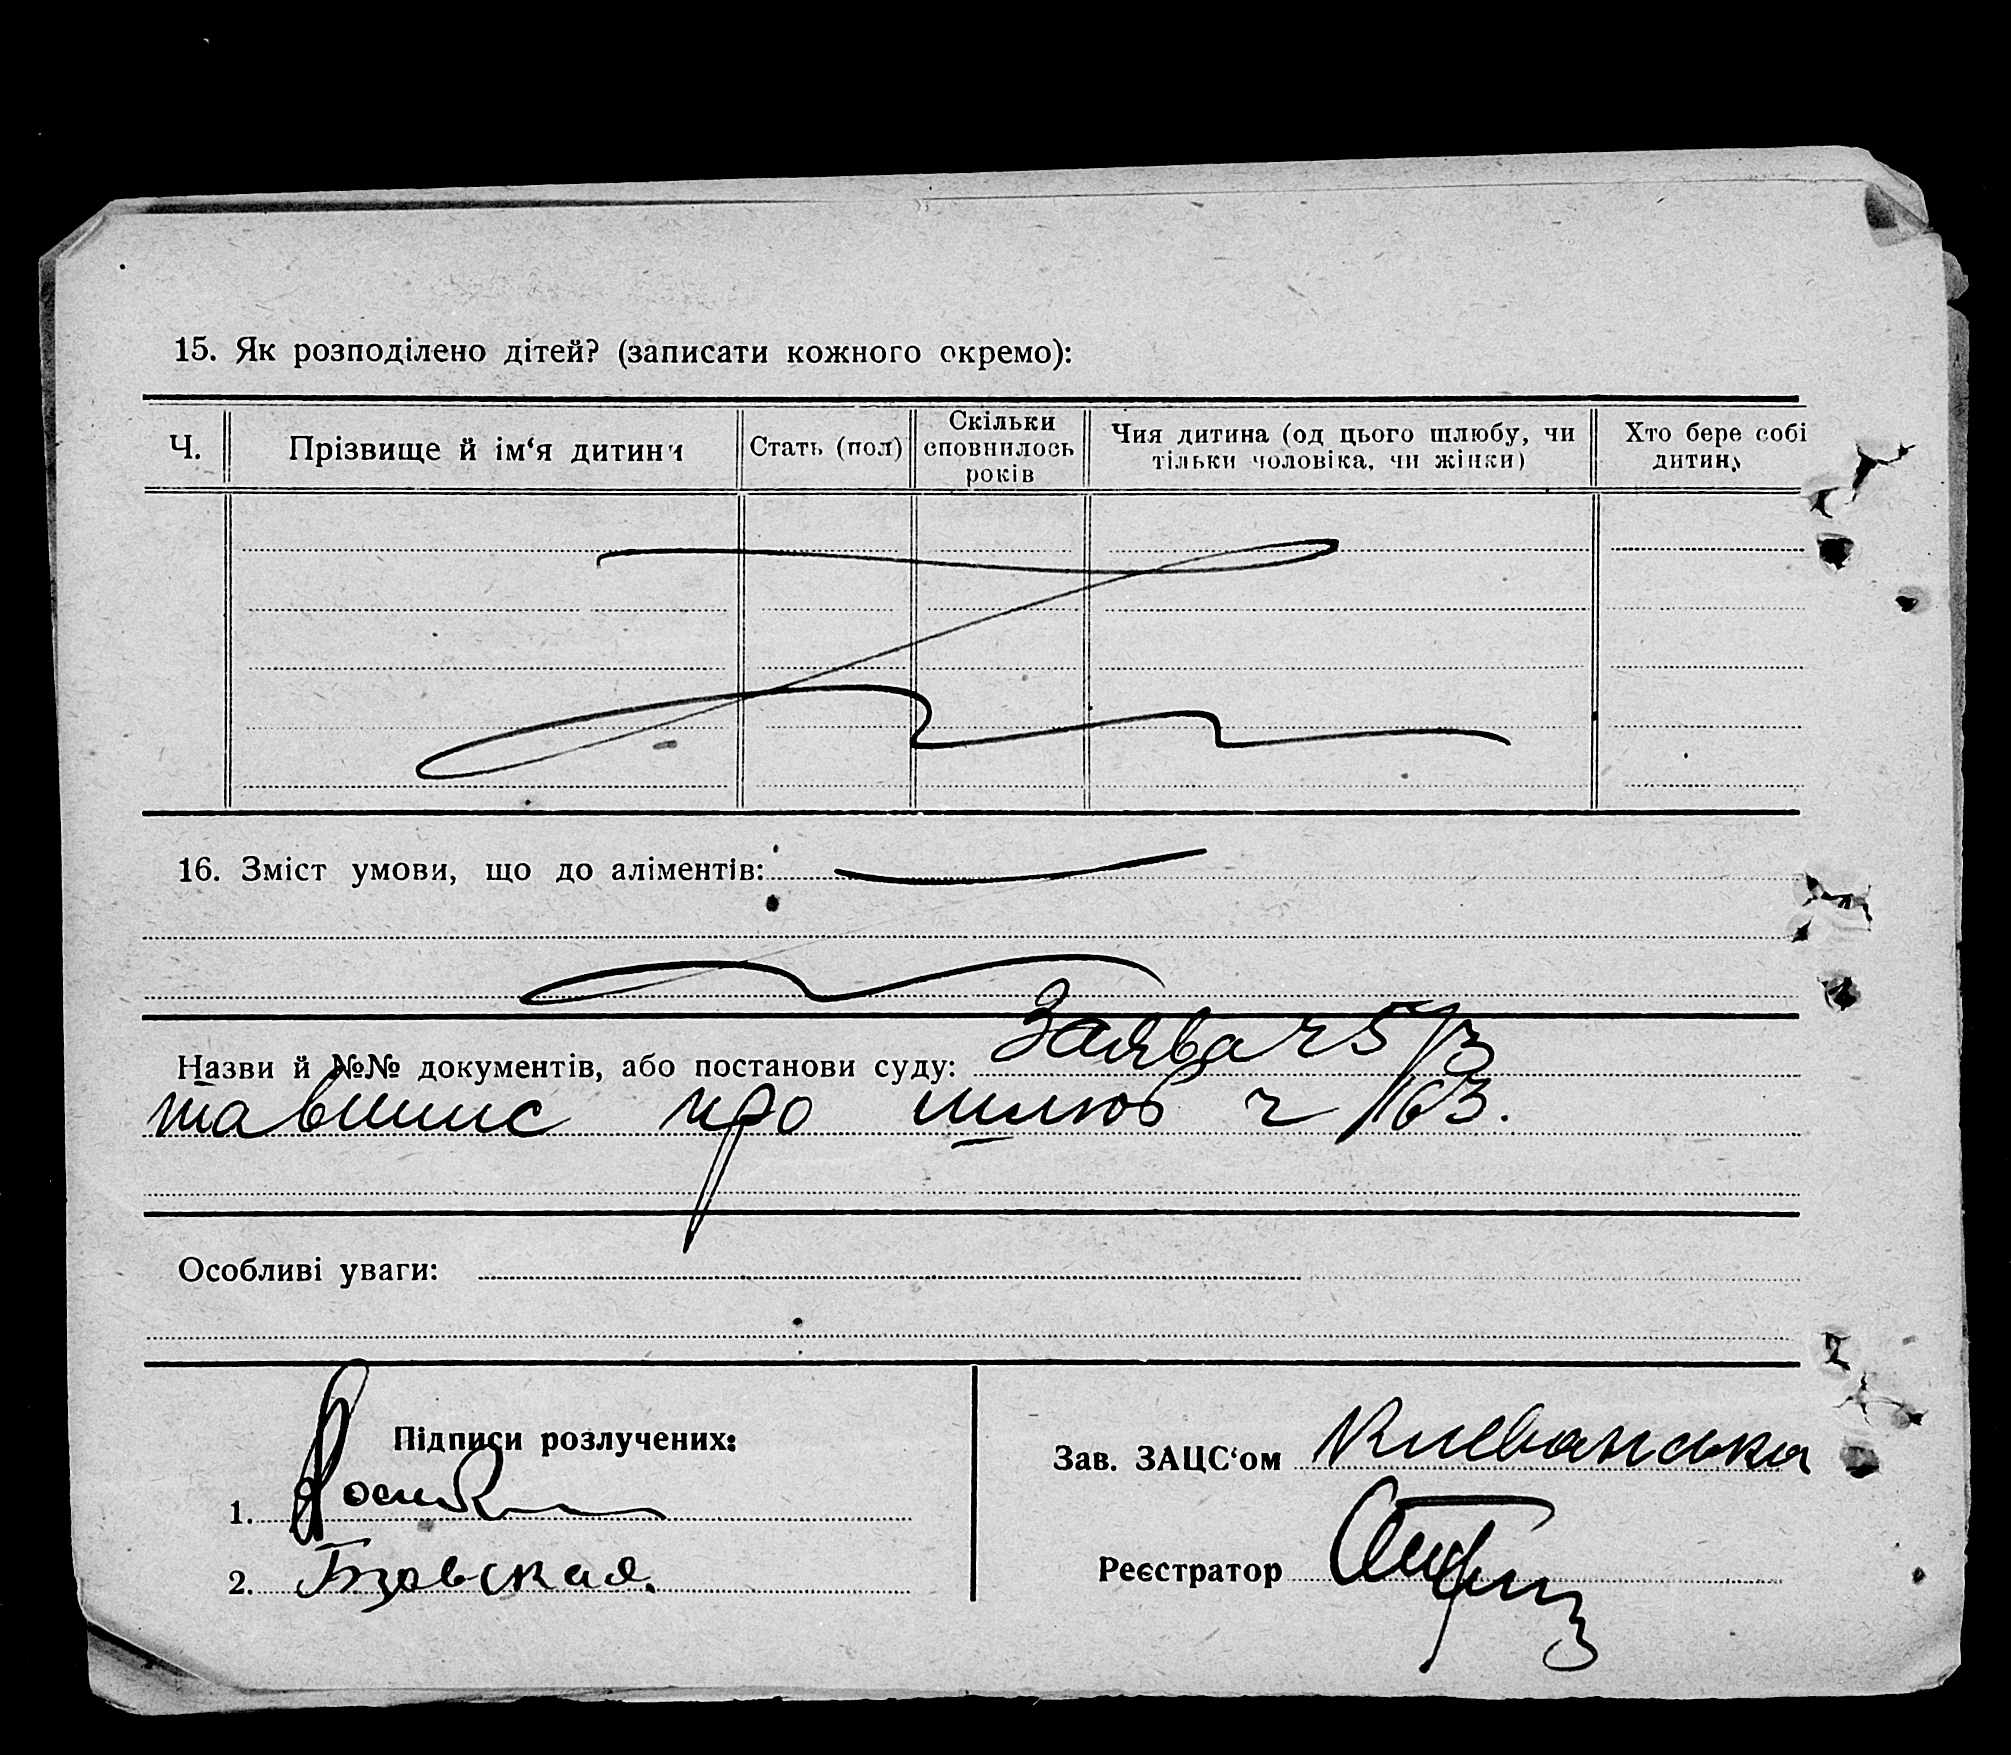 15. Як розподілено дітей? (записати кожного окремо):
Ч.
Прізвище й ім‘я дитини
Стать (пол)
Скільки сповнилось років
Чия дитина (од цього шлюбу, чи тільки чоловіка, чи жінки)
Хто бере собі дитину
16. Зміст умови, що до аліментів:
Назви й №№ документів, або постанови суду: Заява ч 5/3
та випис про шлюб ч 163.
Особливі уваги:
Підписи розлучених:
1.
2. Бзовская.
Зав. ЗАЦС‘ом
Реєстратор